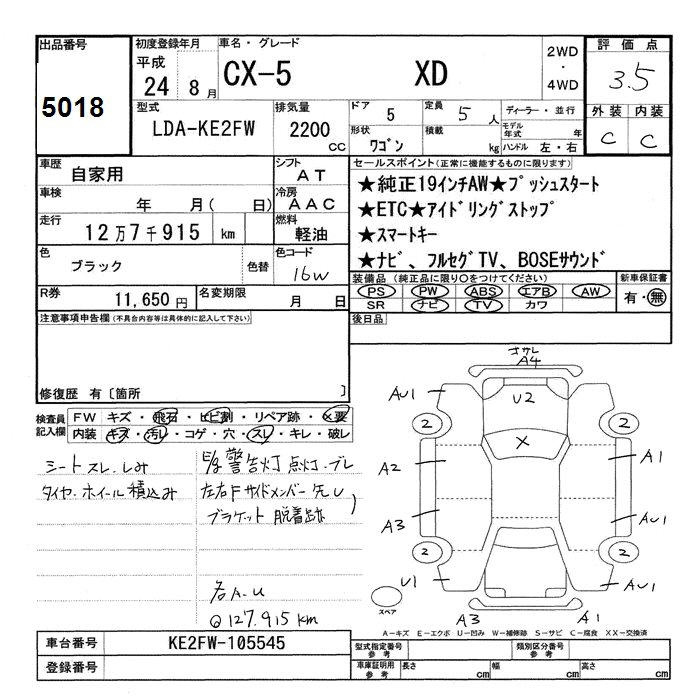 出品番号
5018
初度登録年月
平成
24 8 月
車名・グレード
CX-5 XD
2WD
・
4WD
評価点
3.5
型式
LDA-KE2FW
排気量
2200
cc
ドア
5
定員
5 人
形状
ワゴン
積載
kg
ディーラー・並行
モデル年式
年
ハンドル 左・右
外装 内装
C C
車歴
自家用
シフト
AT
車検
年 月( 日)
冷房
AAC
走行
12万7千915 km
燃料
軽油
色
ブラック
色替
色コード
16W
R券
11,650円
名変期限
月 日
セールスポイント(正常に機能するものに限ります)
★純正19インチAW★プッシュスタート
★ETC★アイドリングストップ
★スマートキー
★ナビ、フルセグTV、BOSEサウンド
装備品 (純正品に限り○をつけてください)
PS PW ABS エアB AW
SR ナビ TV カワ
新車保証書
有・無
後日品
注意事項申告欄(不具合内容等は具体的に記入して下さい)
修復歴 有〔箇所 〕
検査員
記入欄
FW キズ・飛石・ヒビ割・リペア跡・×要
内装 キズ・汚レ・コゲ・穴・スレ・キレ・破レ
シートスレ.しみ
タイヤ.ホイール積込み
警告灯点灯.ブレ
左右Fサイドメンバー先U
ブラケット脱着跡
各A.U
@127.915km
ゴサレ
A4
U2
AU1
2
2
X
A2
A1
A3
AU1
2
2
U1
AU1
スペア
A3
A1
A-キズ E-エクボ U-凹み W-補修跡 S-サビ C-腐食 XX-交換済
車台番号
KE2FW-105545
登録番号
型式指定番号
参考
類別区分番号
参考
車庫証明用
参考
長さ cm 幅 cm 高さ cm